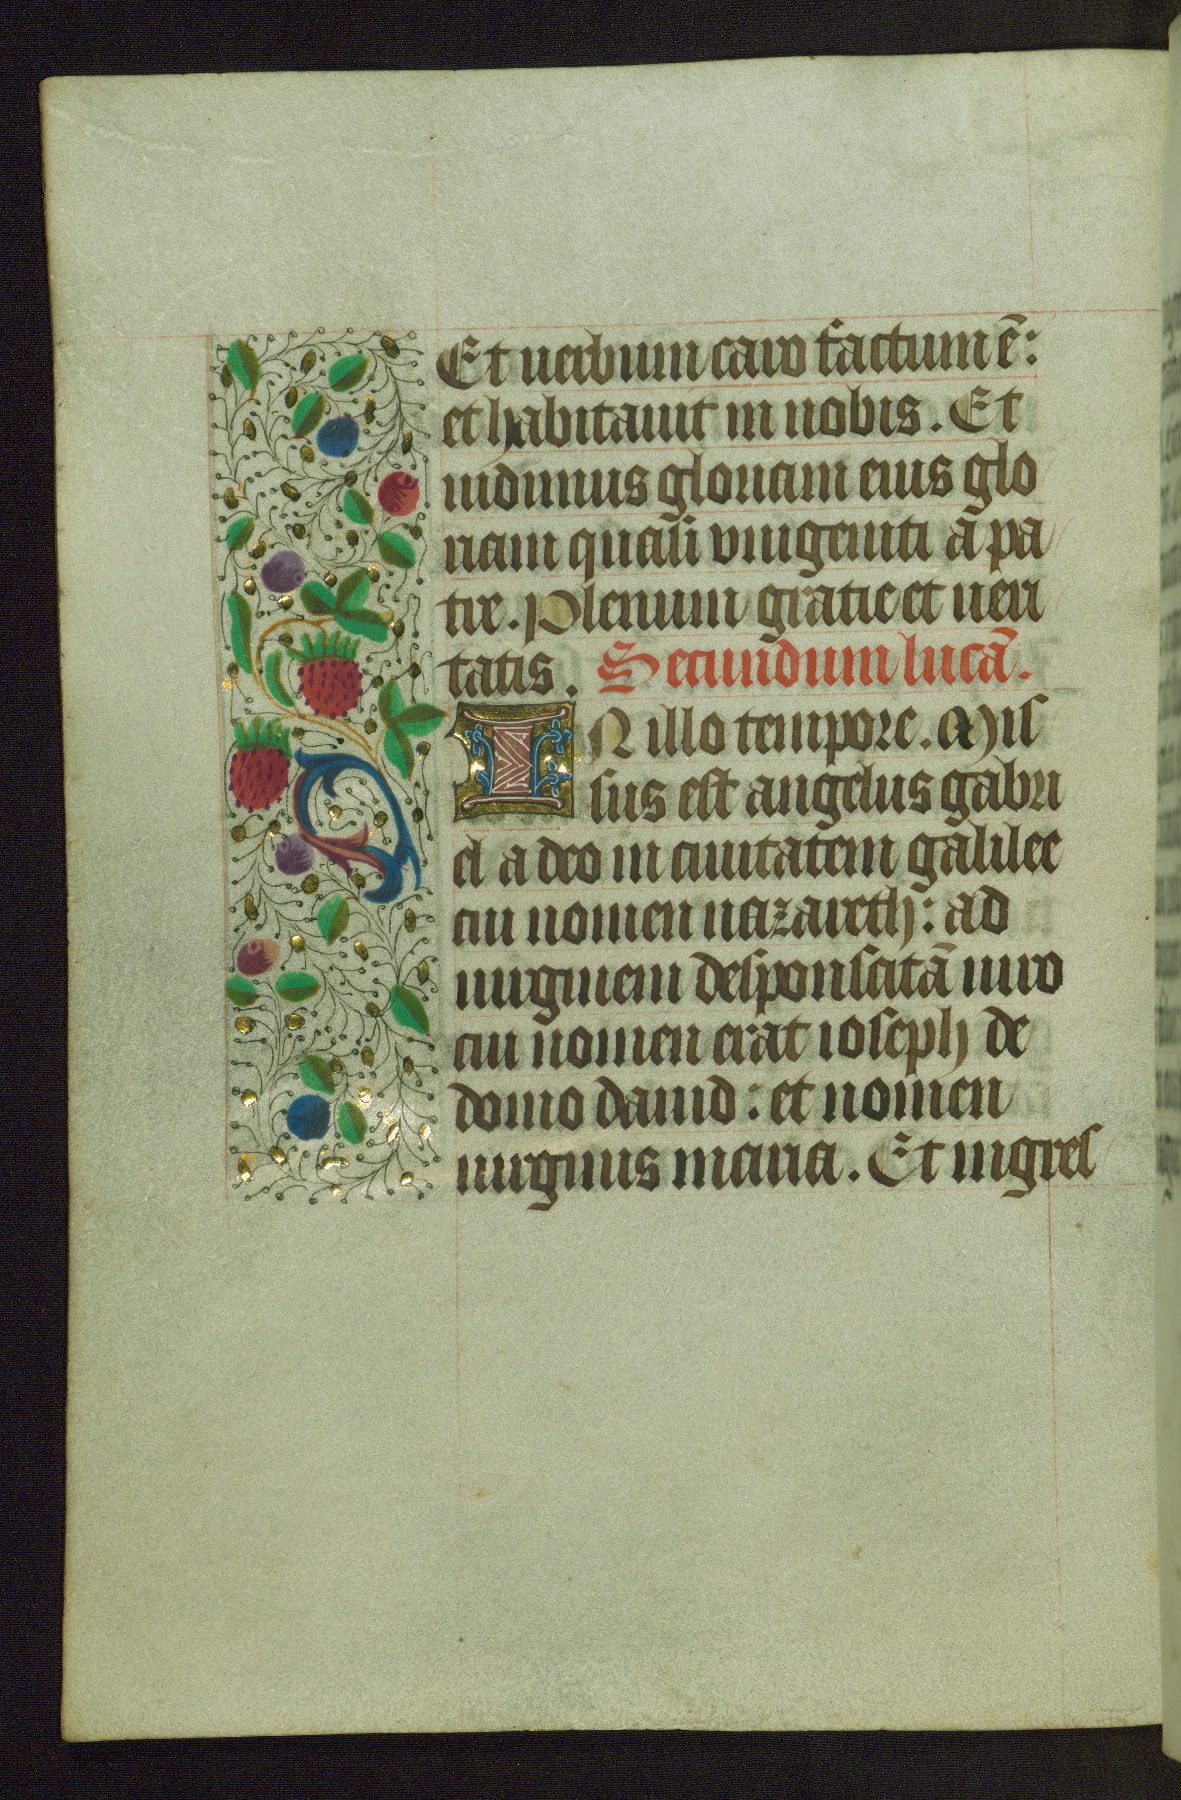 Et uerbum caro factum ē:
et habitauit in nobis. Et
uidimus gloriam eius glo
riam quasi vnigeniti a pa
tre. Plenum gratie et ueri
tatis. Secundum lucā.
IN illo tempore. Mis
sus est angelus gabri
el a deo in ciuitatem galilee
cui nomen nazareth: ad
uirginem desponsatā uiro
cui nomen erat ioseph de
domo dauid: et nomen
uirginis maria. Et ingres